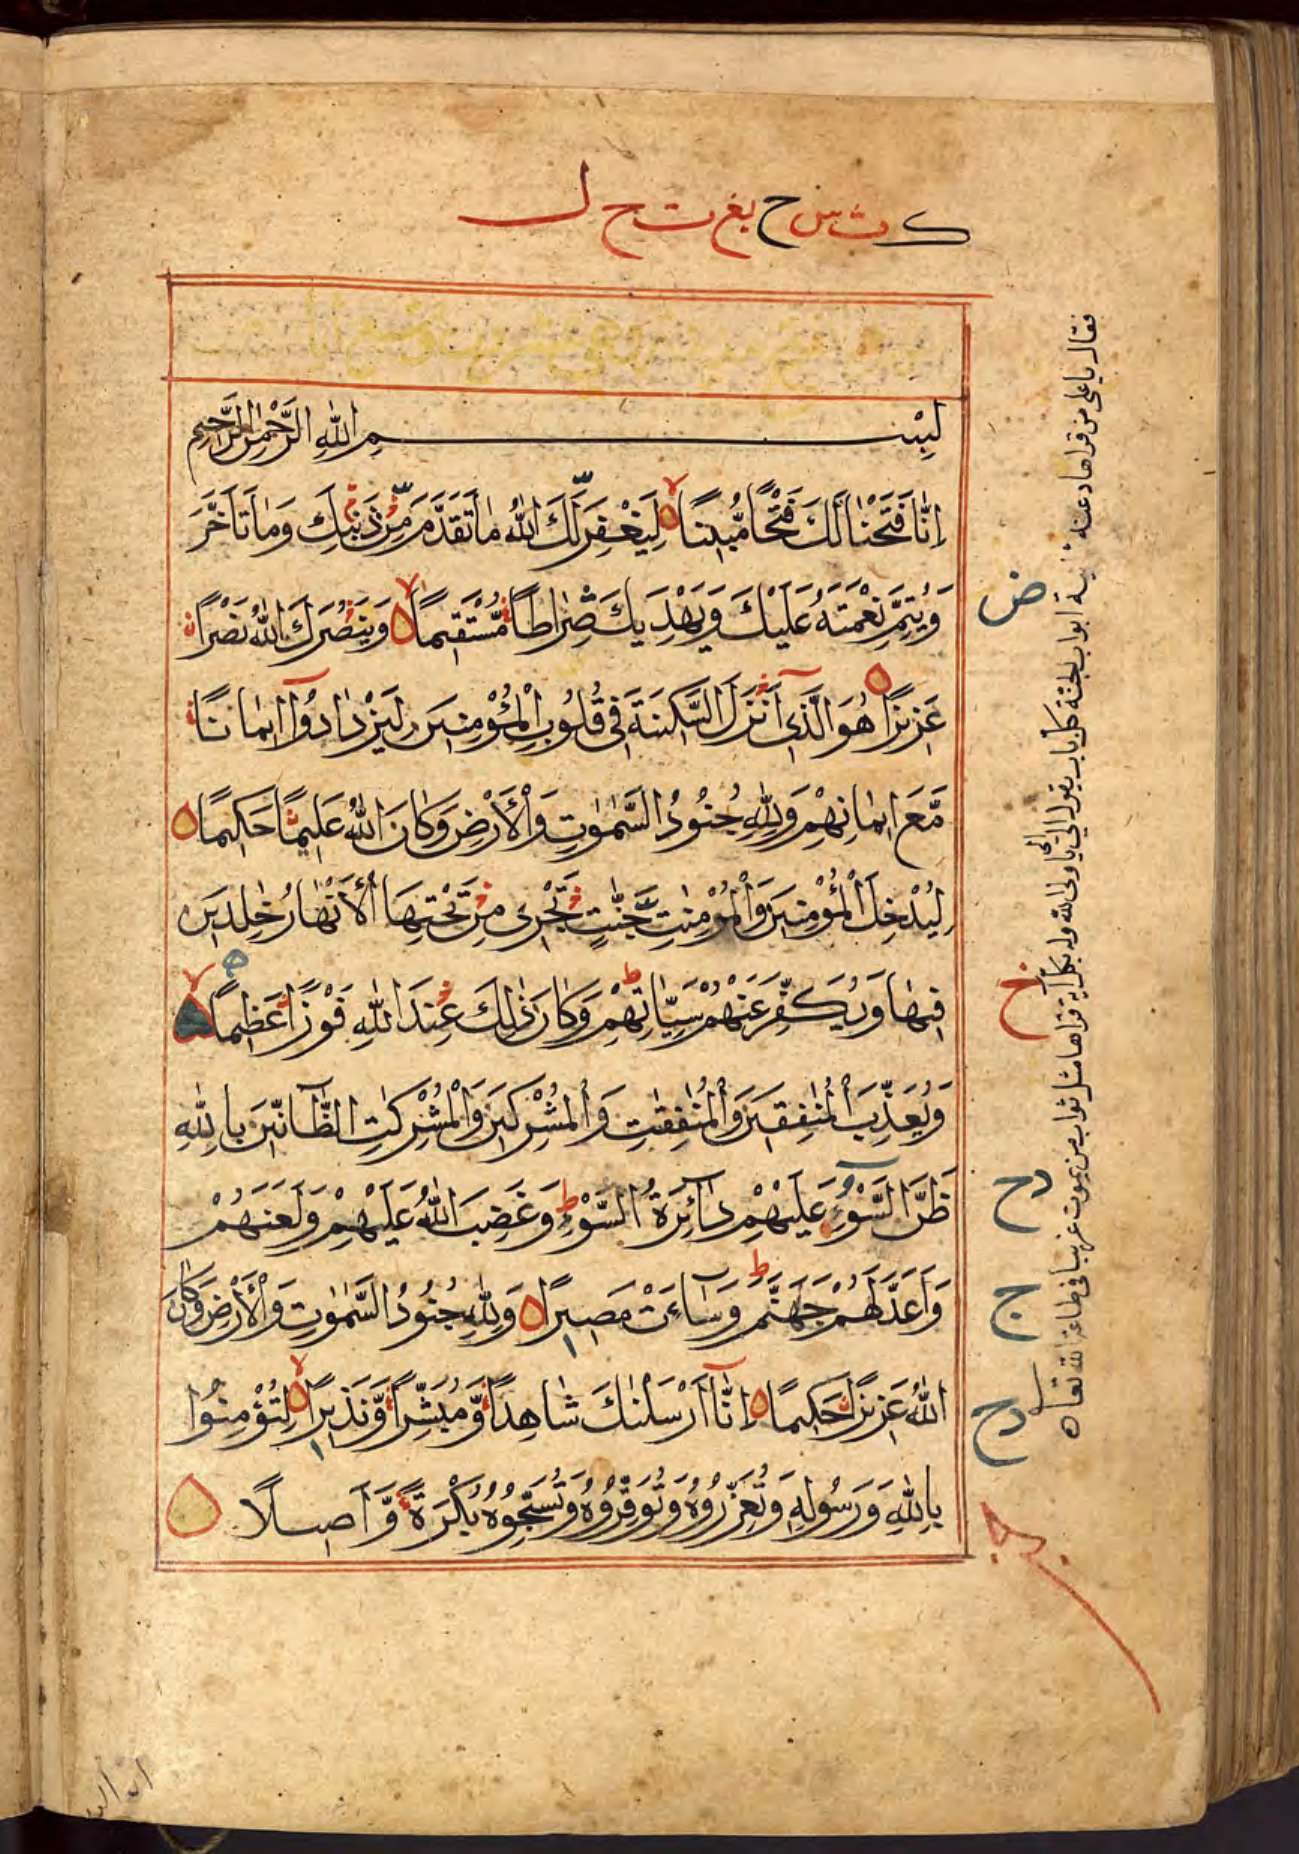 ك ث س ح بغ ت ح ل
بِسْمِ اللهِ الرَّحْمٰنِ الرَّحِيمِ
اِنَّا فَتَحْنَا لَكَ فَتْحًا مُّبِيْنًا لِيَغْفِرَ لَكَ اللهُ مَا تَقَدَّمَ مِنْ ذَنْبِكَ وَمَا تَاَخَّرَ
وَيُتِمَّ نِعْمَتَهُ عَلَيْكَ وَيَهْدِيَكَ صِرَاطًا مُّسْتَقِيمًا وَيَنْصُرَكَ اللهُ نَصْرًا
عَزِيزًا هُوَ الَّذِي اَنْزَلَ السَّكِينَةَ فِي قُلُوبِ الْمُؤْمِنِينَ لِيَزْدَادُوا اِيمَانًا
مَّعَ اِيمَانِهِمْ وَلِلهِ جُنُودُ السَّمٰوٰتِ وَالْاَرْضِ وَكَانَ اللهُ عَلِيمًا حَكِيمًا
لِيُدْخِلَ الْمُؤْمِنِينَ وَالْمُؤْمِنٰتِ جَنّٰتٍ تَجْرِي مِنْ تَحْتِهَا الْاَنْهَارُ خٰلِدِينَ
فِيهَا وَيُكَفِّرَ عَنْهُمْ سَيِّاٰتِهِمْ وَكَانَ ذٰلِكَ عِنْدَ اللهِ فَوْزًا عَظِيمًا
وَيُعَذِّبَ الْمُنٰفِقِينَ وَالْمُنٰفِقٰتِ وَالْمُشْرِكِينَ وَالْمُشْرِكٰتِ الظَّآنِّينَ بِاللهِ
ظَنَّ السَّوْءِ عَلَيْهِمْ دَآئِرَةُ السَّوْءِ وَغَضِبَ اللهُ عَلَيْهِمْ وَلَعَنَهُمْ
وَاَعَدَّ لَهُمْ جَهَنَّمَ وَسَآءَتْ مَصِيرًا وَلِلهِ جُنُودُ السَّمٰوٰتِ وَالْاَرْضِ وَكَانَ
اللهُ عَزِيزًا حَكِيمًا اِنَّآ اَرْسَلْنٰكَ شَاهِدًا وَّمُبَشِّرًا وَّنَذِيرًا لِتُؤْمِنُوا
بِاللهِ وَرَسُولِهِ وَتُعَزِّرُوهُ وَتُوَقِّرُوهُ وَتُسَبِّحُوهُ بُكْرَةً وَّاَصِيلًا
فقال يا على من قراها دعته ثمانية ابواب الجنة كل باب يقول الىّ الىّ يا ولى الله وله بكل اية قراها مثل ثواب من يموت غريبا فى طاعة الله تعالى
ض
خ
دح
ج
دح